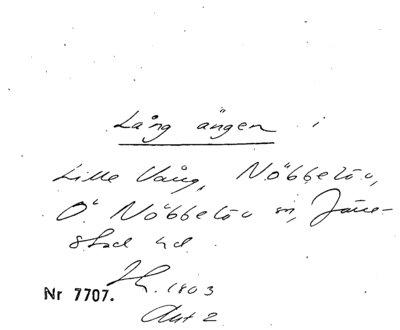 Lång ängen i
Lille Vång, Nöbbelöv,
Ö Nöbbelöv sn, Järre-
stad hd.
1803
Nr 7707.
Akt 2